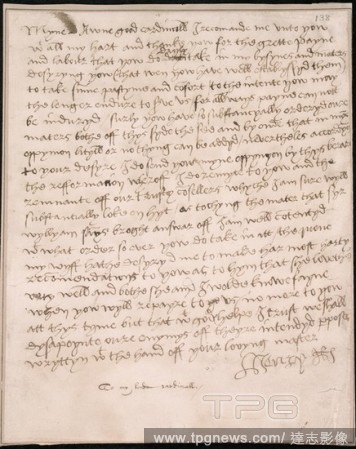 138
Myne awne good cardinall I recomande me unto yow
w all my hart and thanke yow for the grette payne
and labour that yow do dayly take in my bysynes and maters
desyryng yow that wen yow have well
to take summe pastyme and comfort to the intente yow may
the longer endure to serve us for allways payne can not
be induryd surly yow have so substancyally orderyd oure
maters bothe off thys syde the see and by onde that in myne
oppynion lityll or no thyng can be addyd nevertheles accordyng
to your desyre I do send yow myne oppynyon by thys berar
the refformation wheroff I do remyte to yow and the
remnante off our trusty consellers whyche I am sure wyll
substantially loke on hyt as tochyng the mater that syr
wyllyam says broght answar off I am well contentyd
w what order so ever yow do take in itt the quene
my wyff hathe desyryd me to make har most harty
recommendations to yow as to hym that she lovethe
very well and bothe she and I wolde knowe fayne
when yow wyll repayre to us no more to yow
att thys tyme but that w gods helpe I trust we shall
dysapoynte oure enymys off theyre intendyd purpose
wryttyn w the hand off your lovyng master
Henry
TPG
www.tpgnews.com / 達志影像